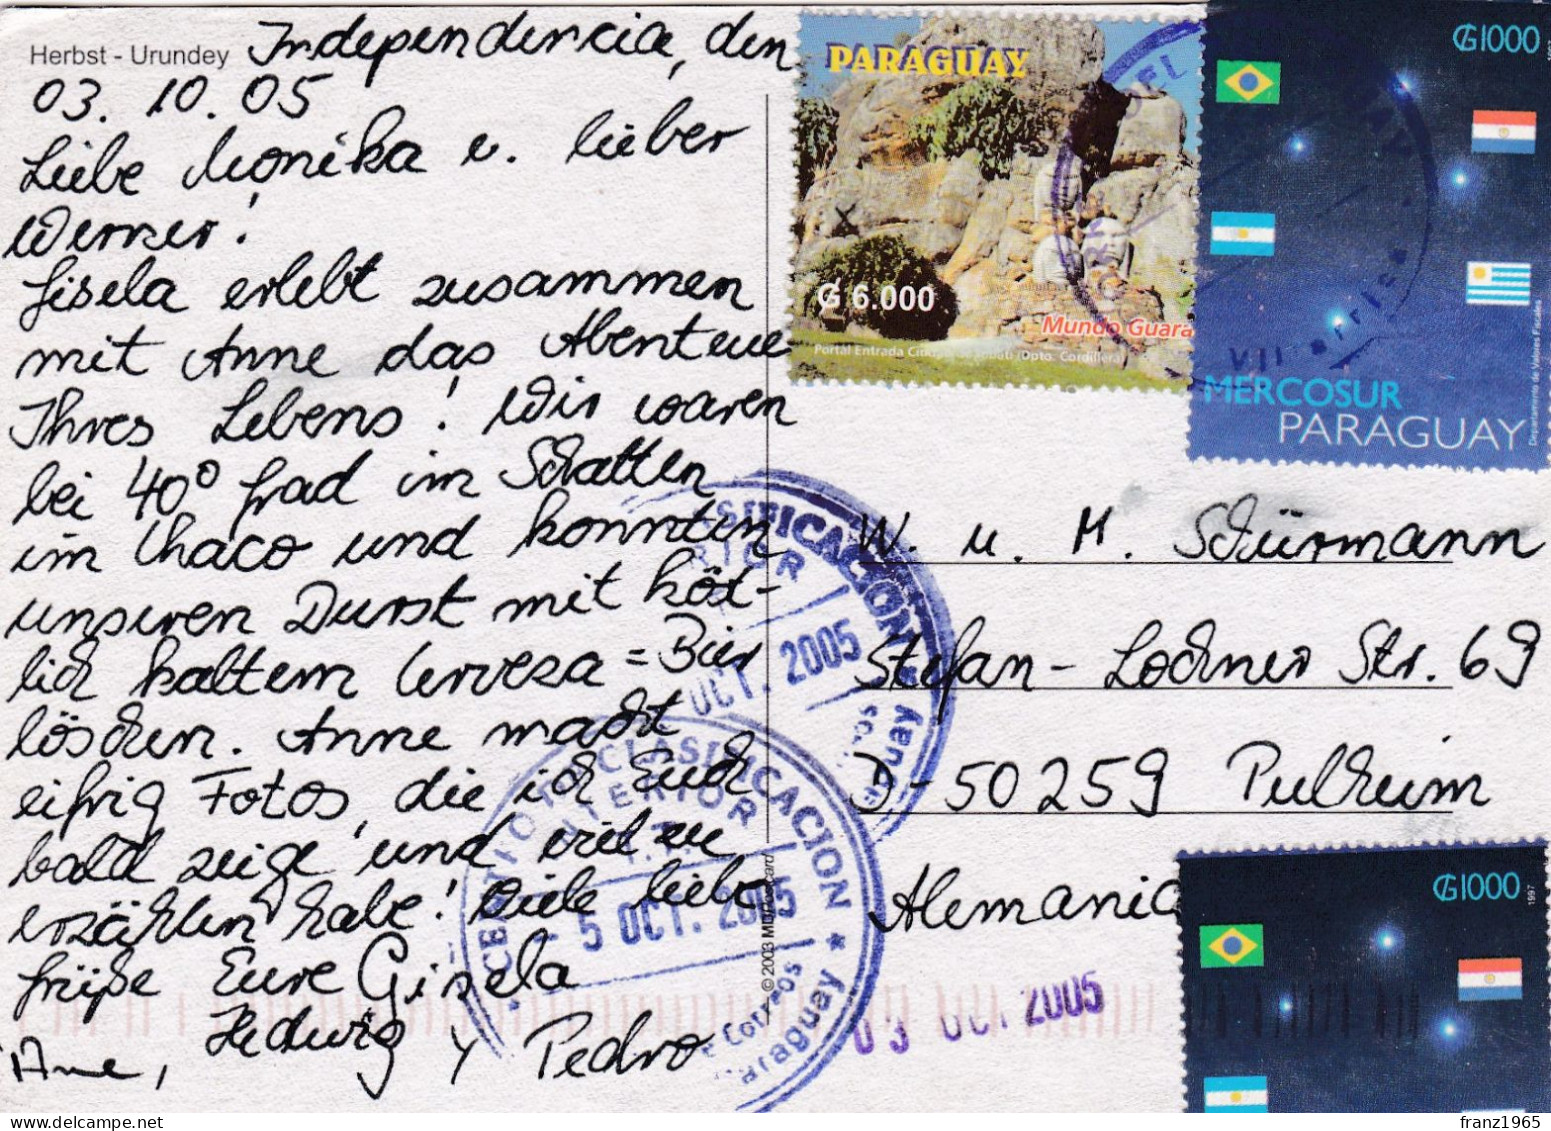 Herbst - Urundey
Independencia, den
03. 10. 05
Liebe Monika u. lieber
Werner!
Gisela erlebt zusammen
mit Anne das Abenteuer
Ihres Lebens! Wir waren
bei 40° Grad im Schatten
im Chaco und konnten
unseren Durst mit köst-
lich kaltem Cerveza = Bier
löschen. Anne macht
eifrig Fotos, die ich Euch
bald zeige und viel zu
erzählen habe! Viele liebe
Grüße Eure Gisela
Anne, Hedwig y Pedro
© 2003
PARAGUAY
₲ 6.000
Mundo Guara
Portal Entrada (Dpto. Cordillera)
₲1000
MERCOSUR
PARAGUAY
Departamento de Valores Fiscales
W. u. M. Schürmann
Stefan-Lochner Str. 69
D-50259 Pulheim
Alemania
₲1000
1997
CLASIFICACION
OCT. 2005
CLASIFICACION
INTERIOR
5 OCT. 2005
Correos
Paraguay
03 OCT 2005
franz1965